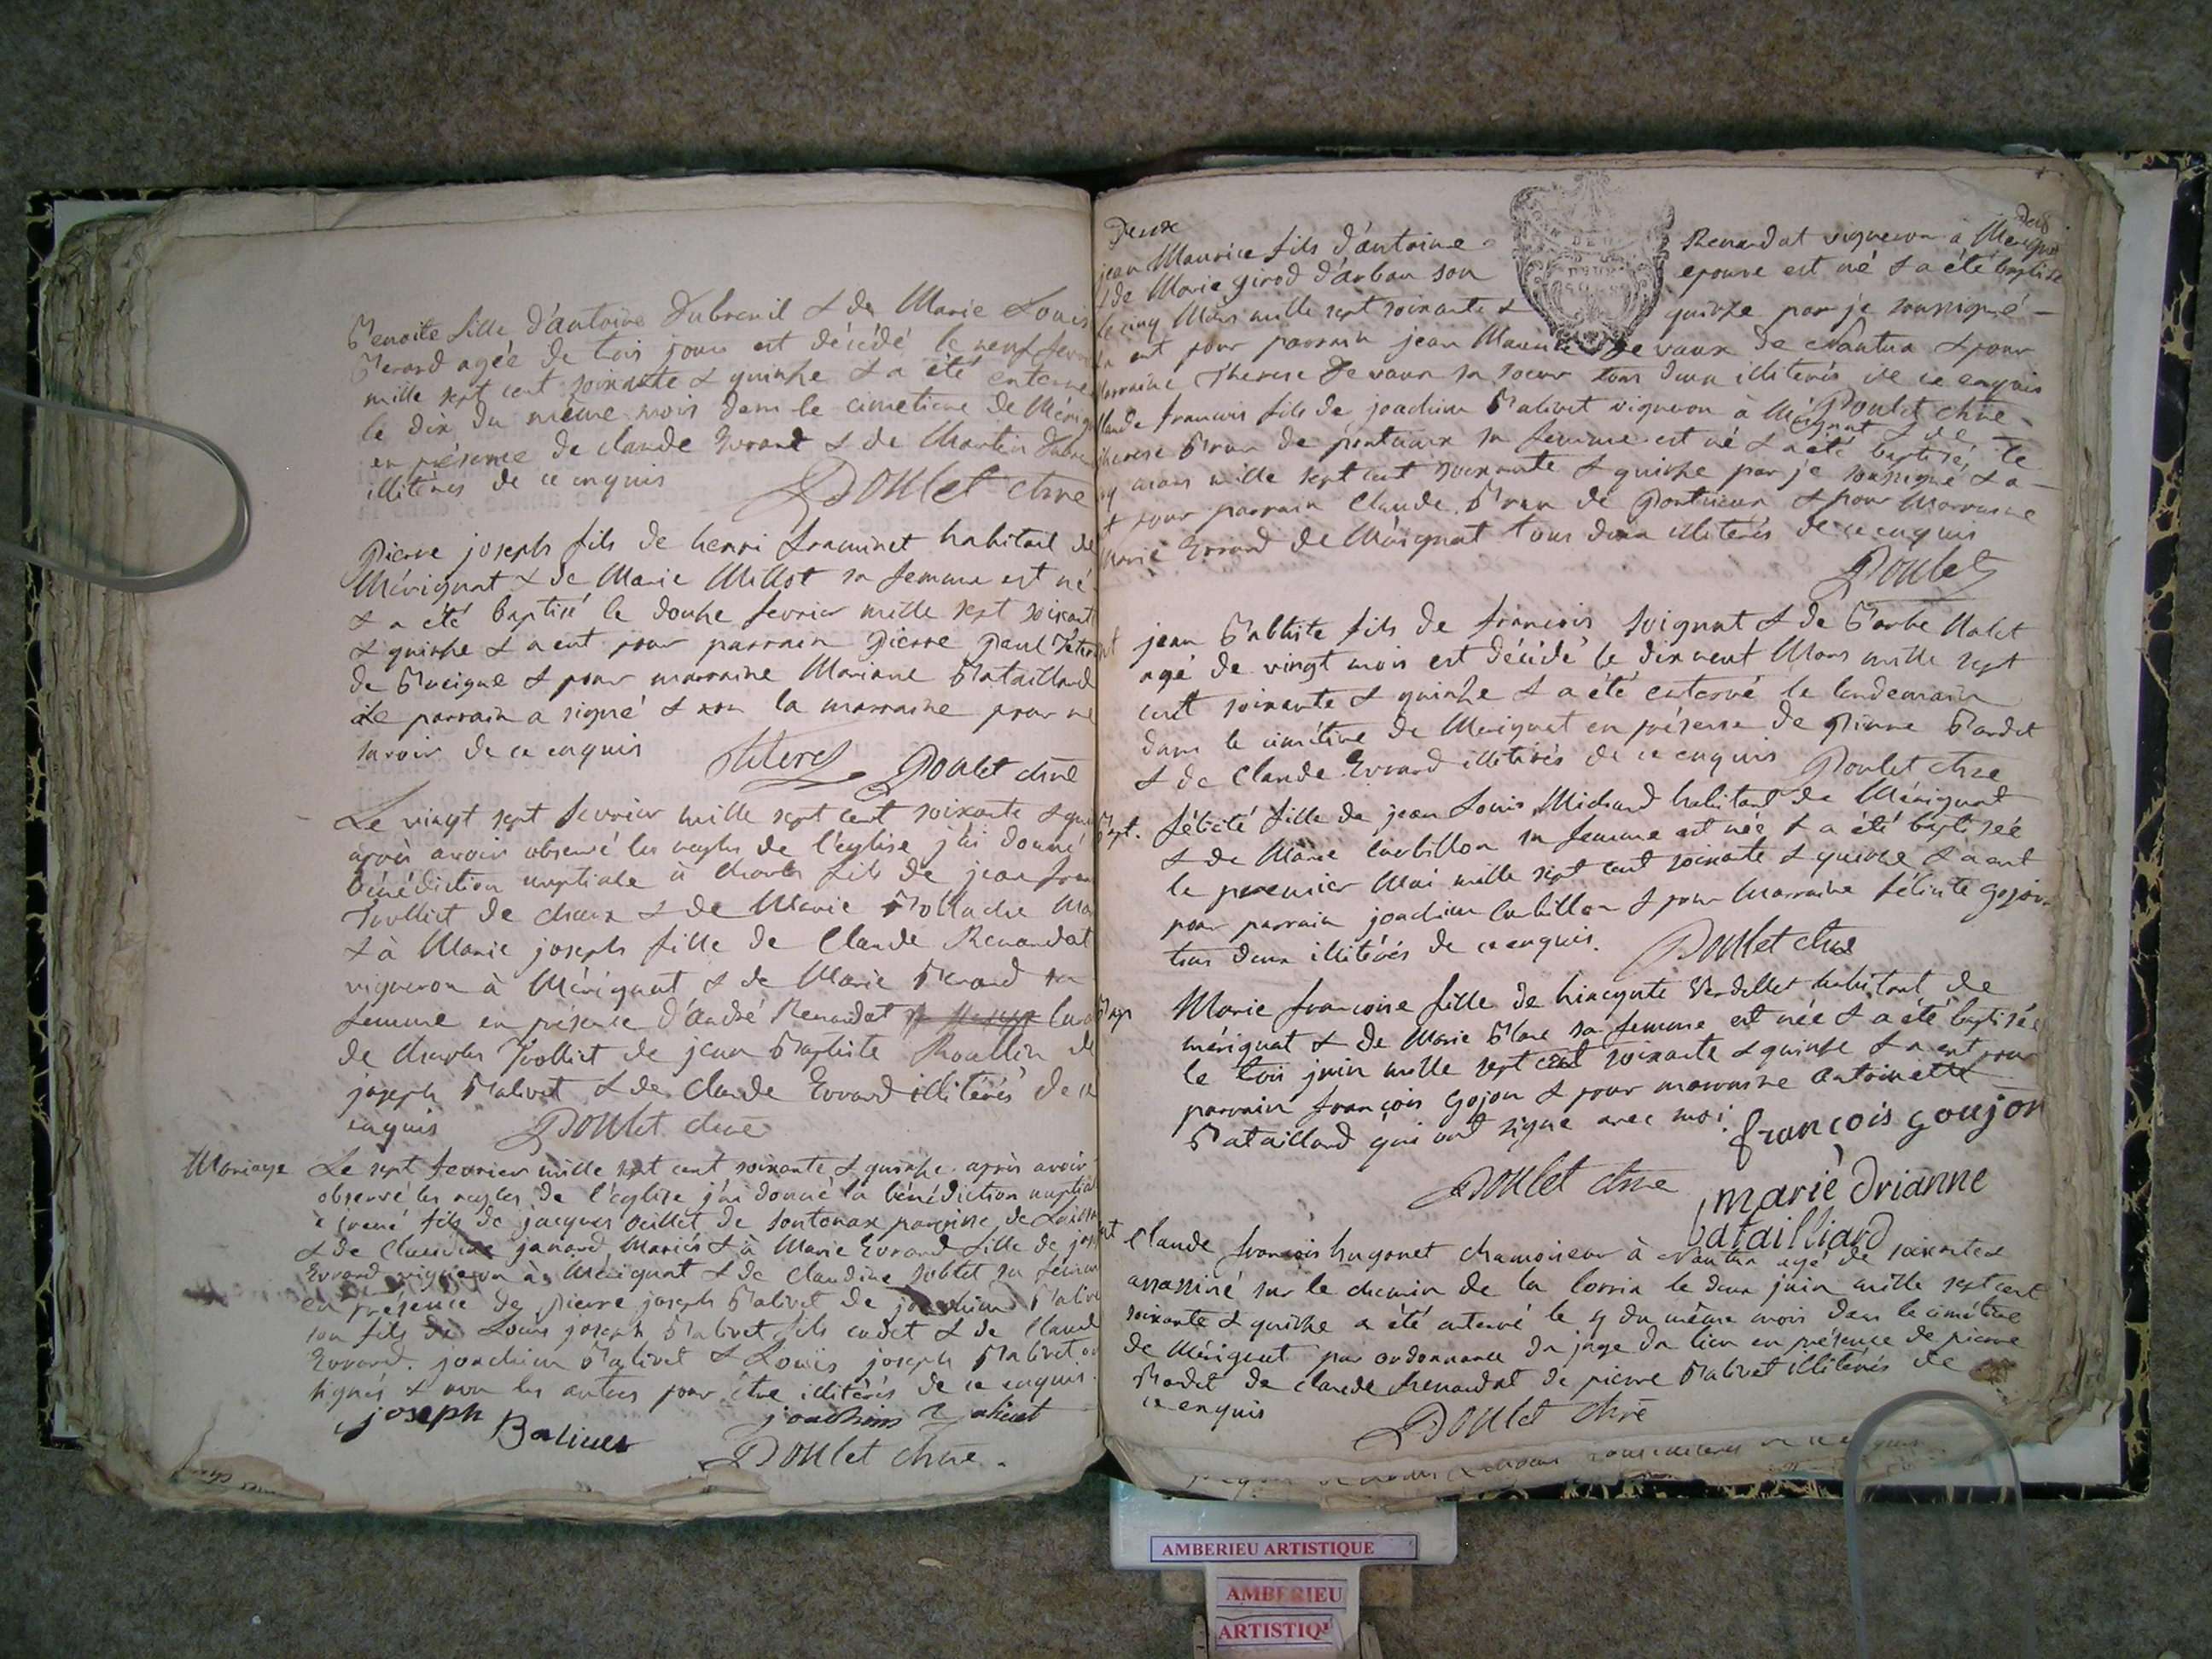 Benoite fille d'antoine Dubreuil & de Marie Louis
Berard agée de trois jours est décédé le neuf fevri
mille sept cent soixante & quinze & a été enterre
le dix du même mois dans le cimetiere de Mérign
en présence de claude Evrard & de Martin Dubre
illiterés de ce enquis Poulet chne
Pierre joseph fils de henri framinet habitant de
Mérignat & de Marie Millot sa femme est né
& a été baptisé le douze fevrier mille sept soixant
& quinze & a eut pour parrain Pierre Paul
de & pour marraine Mariane Bataillard
Le parrain a signé & non la marraine pour ne
savoir de ce enquis Poulet chne
Le vingt sept fevrier mille sept cent soixante & qui
après avoir observé les regles de l'église j'ai donné
bénédiction nuptiale à charles fils de jean
de & de Marie
& à Marie joseph fille de Claude Renaudat
vigneron à Mérignat & de Marie Berard sa
femme en présence d'andré Renaudat
de charles de jean Baptiste Roullin de
joseph Balivet & de Claude Evrard illitérés de ce
enquis Poulet chne
Mariage Le sept fevrier mille sept cent soixante & quinze après avoir
observé les regles de l'église j'ai donné la bénédiction nuptial
à fils de jacques de paroisse de
& de Claudine janard Mariés & à Marie Evrard fille de jos
Evrard vigneron à Merignat & de Claudine sa femme
en présence de pierre joseph Balivet de joachim Balive
son fils de Louis joseph Balivet fils cadet & de Claud
Evrard. joachim Balivet & Louis joseph Balivet on
signés & non les autres pour être illitérés de ce enquis.
joseph Balivet joachim Balivet
Poulet chne.
Deux
jean Maurice fils d'antoine Renaudat vigneron a Merignat
& de Marie girod d'arban son epouse est né & a été baptisé
le cinq Mars mille sept soixante & quinze par je soussigné
eut pour parrain jean Maurice De vaux de Nantua & pour
marraine Therese De vaux sa soeur tous deux illiterés de ce enquis
Poulet chne
Claude francois fils de joachim Balivet vigneron à Mérignat & de
therese de sa femme est né & a été baptisé le
mars mille sept cent soixante & quinze par je soussigné & a
pour parrain Claude de & pour Marraine
Marie Evrard de Mérignat tous deux illiterés de ce enquis
Poulet
jean Babtiste fils de francois & de Barbe
agé de vingt mois est décidé le dix neuf Mars mille sept
cent soixante & quinze & a été enterré le lendemain
dans le cimétiere de Merignat en présence de Pierre Bardet
& de Claude Evrard illitérés de ce enquis Poulet chne
Bapt. félicité fille de jean Louis Michard habitant de Mérignat
& de Marie Curbillon sa femme est née & a été baptisée
le premier Mai mille sept cent soixante & quinze & a eut
pour parrain joachim Curbillon & pour Marraine félicité gojon
tous deux illitérés de ce enquis. Poulet chne
Marie francoise fille de hiacynte habitant de
mérignat & de Marie Blanc sa femme est née & a été baptisée
le trois juin mille sept cent soixante & quinze & a eut pour
parrain françois Gojon & pour marraine Antoinette
Bataillard qui ont signé avec moi. françois goujon
Poulet chne marie drianne
batailliard
Claude françois hugonet chamoiseur à Nantua agé de soixante
assassiné sur le chemin de la le deux juin mille sept cent
soixante & quinze a été enterré le 4 du même mois dans le cimétiere
de Mérignat par ordonnance du juge du lieu en présence de pierre
Bardet de claude Renaudat de pierre Balivet illitérés de
ce enquis Poulet chne
AMBERIEU ARTISTIQUE
AMBERIEU
ARTISTIQ